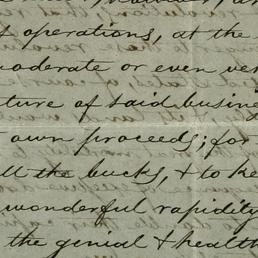 of operations, at the
moderate or even very
ture of said busine
own proceeds; for
ll the bucks, & to ke
wonderful rapidity
the genial & health